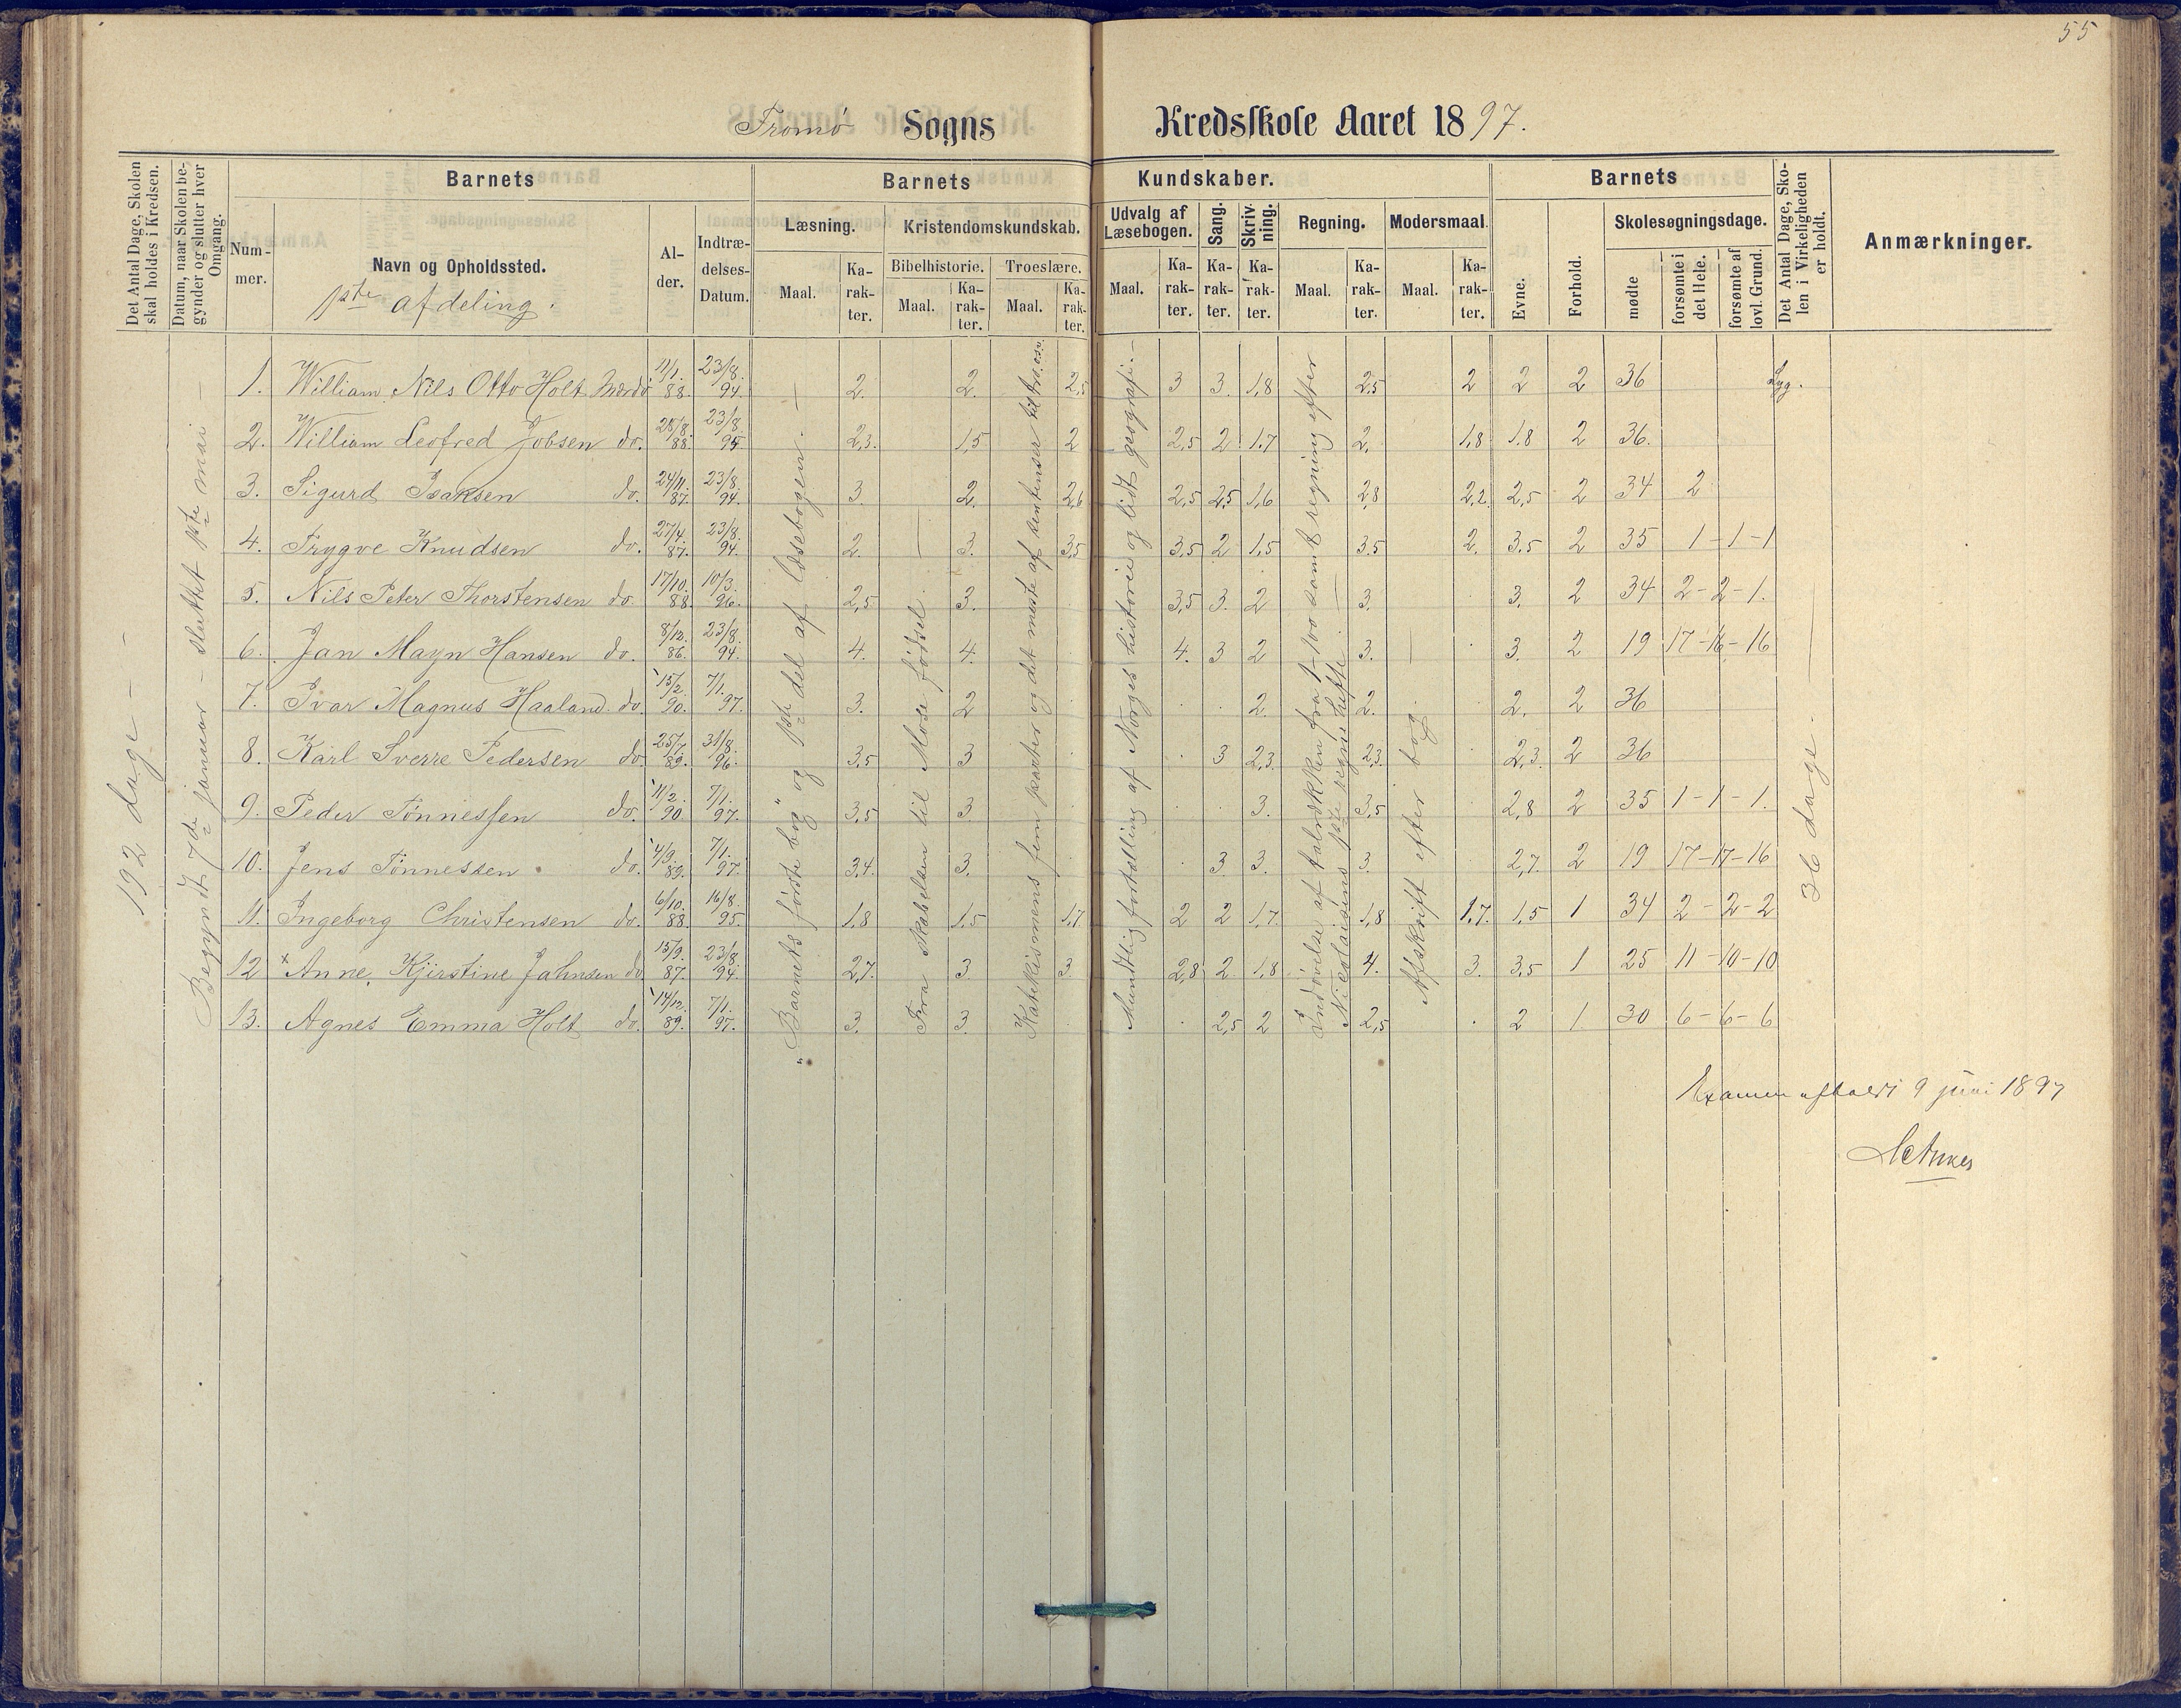 55
Tromø Sogns Kredsskole Aaret 1897.
Det Antal Dage, Skolen skal holdes i Kredsen.
Datum, naar Skolen begynder og slutter hver Omgang.
Barnets
Nummer.
Navn og Opholdssted.
1ste afdeling.
Alder.
Indtrædelses-Datum.
Barnets Kundskaber.
Læsning.
Maal.
Karakter.
Kristendomskundskab.
Bibelhistorie.
Maal.
Karakter.
Troeslære.
Maal.
Karakter.
Udvalg af Læsebogen.
Maal.
Karakter.
Sang.
Karakter.
Skrivning.
Karakter.
Regning.
Maal.
Karakter.
Modersmaal.
Maal.
Karakter.
Barnets
Evne.
Forhold.
Skolesøgningsdage.
mødte
forsømte i det Hele.
forsømte af lovl. Grund.
Det Antal Dage, Skolen i Virkeligheden er holdt.
Anmærkninger.
192 dage
Begyndt 7de januar - sluttet 1ste mai
"Barnets første bog" og 1ste del af læsebogen.
Fra skabelsen til Mose fødsel.
Katekismens fem parter og det meste af
Mundtlig fortælling af Norges historie og lidt geografi.
Indøvelse af talrækken fra 1-100 samt regning efter
Nicolaisens 1ste regnehefte.
Afskrift efter bog.
36 dage.
1. William Nils Otto Holt Mærdø 11/1. 88. 23/8. 94. 2. 2. 2,5 3 3. 1,8 2,5 2 2 2 36 Syg.
2. William Leofred Jobsen do. 28/8. 88. 23/8. 95. 2,3. 1,5 2 2,5 2 1,7 2. 1,8 1,8 2 36.
3. Sigurd Isaksen do. 24/11. 87. 23/8. 94. 3. 2. 2,6 2,5 2,5 1,6 2,8 2,2 2,5 2 34 2
4. Trygve Knudsen do. 27/4. 87. 23/8. 94. 2. 3. 3,5 3,5 2 1,5 3,5 2. 3,5 2 35 1-1-1
5. Nils Peter Thorstensen do. 17/10. 88. 10/3. 96. 2,5 3. 3,5 3. 2 3. 3. 2 34 2-2-1.
6. Jan Mayn Hansen do. 8/12. 86. 23/8. 94. 4. 4. 4. 3 2 3. 3. 2 19 17-16-16
7. Ivar Magnus Haaland. do. 15/2. 90. 7/1. 97. 3. 2 2. 2. 2. 2 36
8. Karl Sverre Pedersen do. 25/7. 89. 31/8. 96. 3,5 3 3 2,3 2,3. 2,3. 2 36
9. Peder Tønnessen do. 11/2. 90 7/1. 97. 3,5 3 3. 3,5 2,8 2 35 1-1-1.
10. Jens Tønnessen do. 4/9. 89. 7/1. 97. 3,4. 3. 3 3. 3. 2,7. 2 19 17-17-16
11. Ingeborg Christensen do. 6/10. 88 16/8. 95. 1,8 1,5 1,7 2 2 1,7. 1,8 1,7. 1,5 1 34 2-2-2
12 x Anne, Kjirstine Jahnsen do 15/9. 87. 23/8. 94. 2,7. 3. 3. 2,8 2 1,8 4. 3. 3,5 1 25 11-10-10
13. Agnes Emma Holt do. 14/12. 89. 7/1. 97. 3. 3. 2,5 2 2,5 2 1. 30 6-6-6
Examen afholdt 9 juni 1897